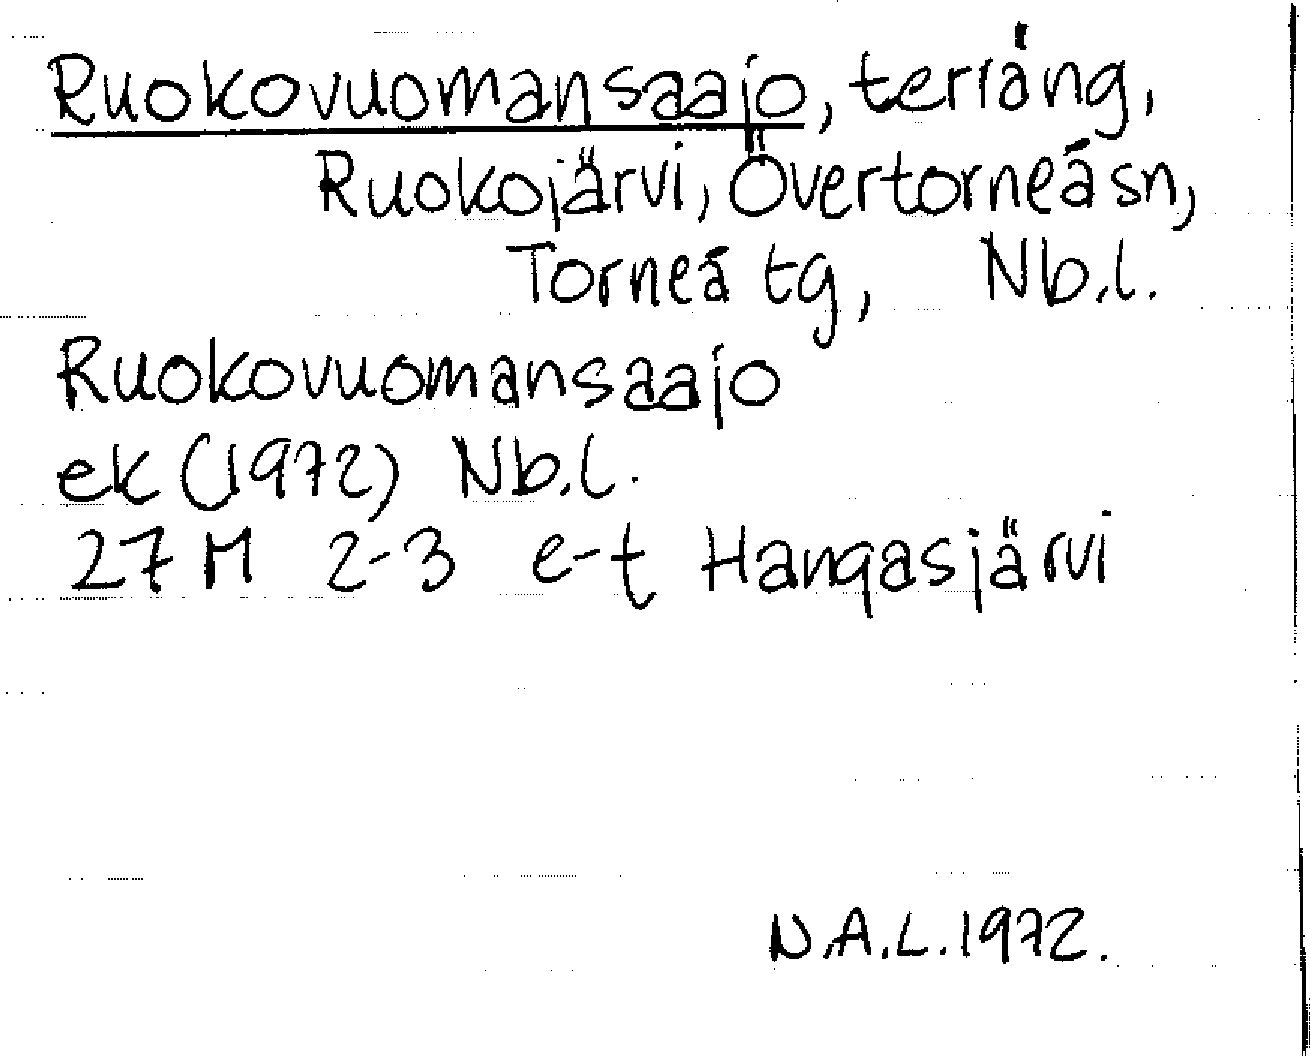 Ruokovuomansaajo, terräng,
Ruokojärvi, Övertorneå sn,
Torneå tg, Nb.l.
Ruokovuomansaajo
ek (1972) Nb.l.
27 M 2-3 e-t Hangasjärvi
N.A.L. 1972.